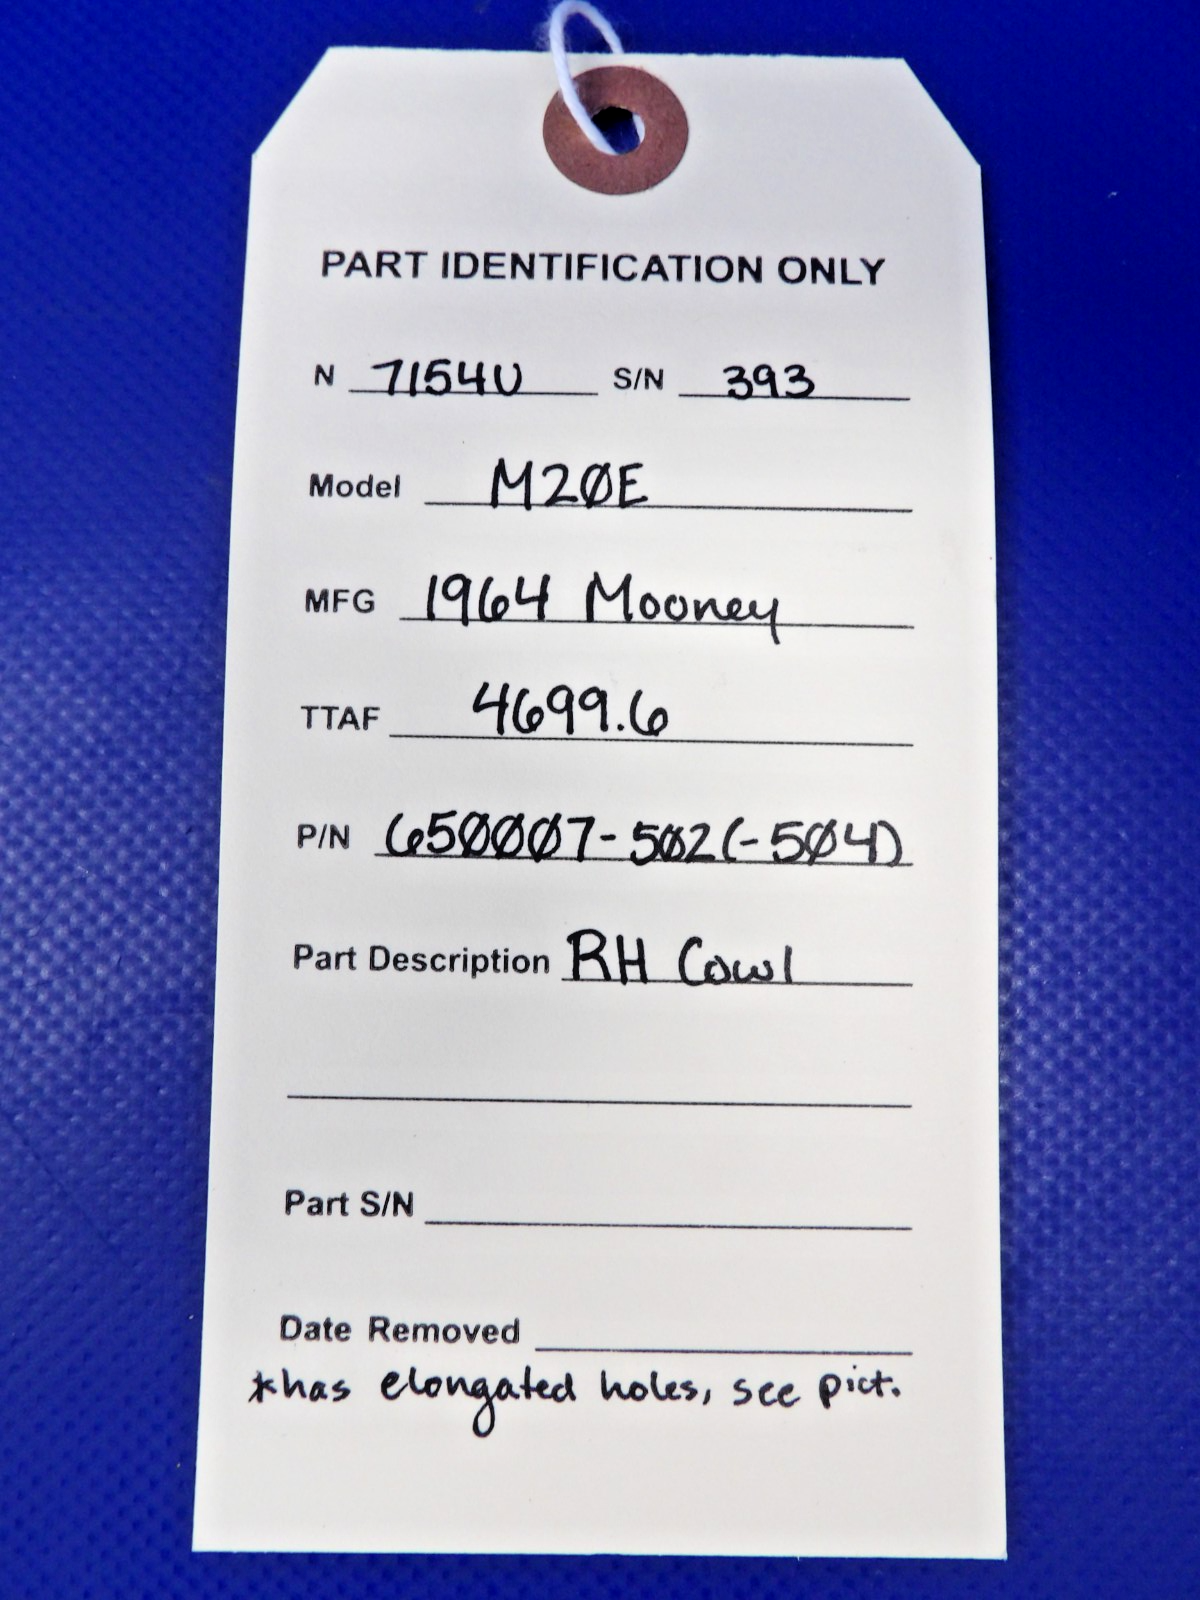 PART IDENTIFICATION ONLY
N 7154U S/N 393
Model M20E
MFG 1964 Mooney
TTAF 4699.6
P/N 650007-502(-504)
Part Description RH Cowl
Part S/N
Date Removed
*has elongated holes, see pict.